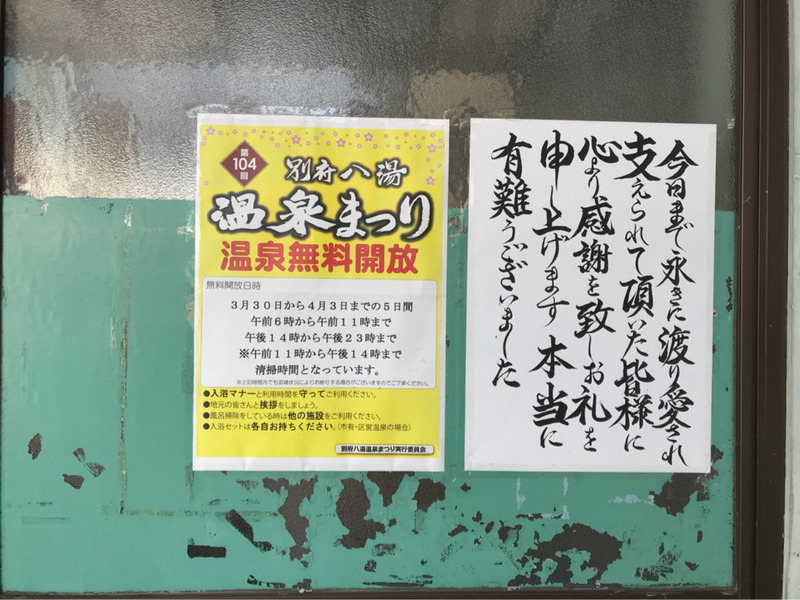 第
104
回
別府八湯
温泉まつり
温泉無料開放
無料開放日時
3月30日から4月3日までの5日間
午前6時から午前11時まで
午後14時から午後23時まで
※午前11時から午後14時まで
清掃時間となっています。
※上記時間内でも混雑状況によりお断りする場合がございますのでご了承ください。
●入浴マナーと利用時間を守ってご利用ください。
●地元の皆さんと挨拶をしましょう。
●風呂掃除をしている時は他の施設をご利用ください。
●入浴セットは各自お持ちください。(市有・区営温泉の場合)
別府八湯温泉まつり実行委員会
今日まで永きに渡り愛され
支えられて頂いた皆様に
心より感謝を致しお礼を
申し上げます 本当に
有難うございました